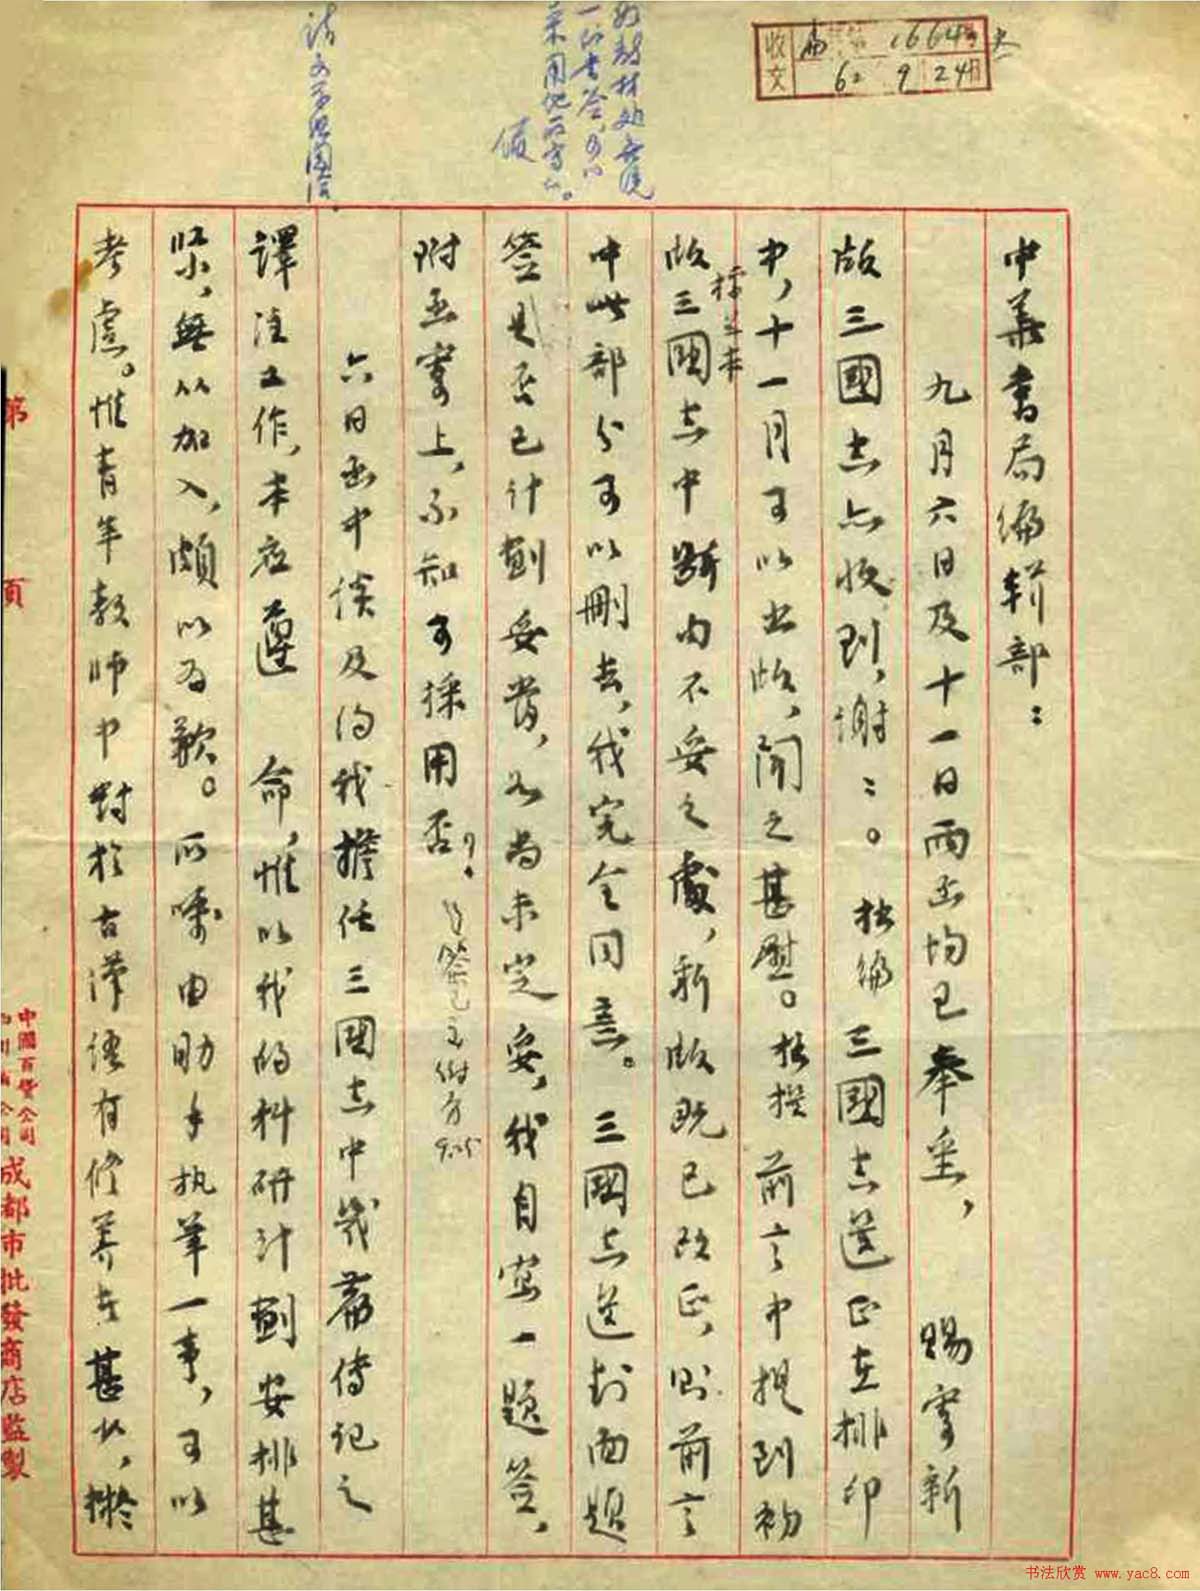 收文
16643号
62 9 24
中華書局編輯部：
九月六日及十一日兩函均已奉垂， 賜寄新
版三國志亦收到，謝：。拙編三國志選正在排印
中，十一月可以出版，聞之甚慰。拙撰前言中提到初
版三國志標点本中斷句不妥之處，新版既已改正，則前言
中此部分可以刪去，我完全同意。三國志選封面題
簽是否已計劃妥當，如尚未定妥，我自寫一題簽，
附函寄上，不知可採用否？
六日函中談及約我擔任三國志中幾篇傳記之
譯注工作，本應遵 命，惟以我的科研計劃安排甚
緊，無从加入，頗以為歉。所囑由助手执筆一事，可以
考慮。惟青年教師中對於古漢語有修養者甚少，擬
第 頁
中國百貨公司
四川省公司
成都市批發商店監製
书法欣赏 www.yac8.com